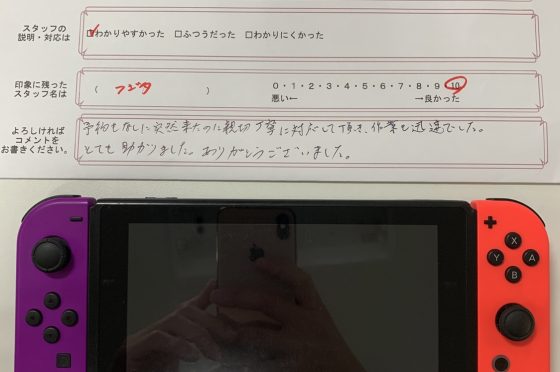 スタッフの
説明・対応は
☑わかりやすかった □ふつうだった □わかりにくかった
印象に残った
スタッフ名は
( フジタ )
0・1・2・3・4・5・6・7・8・9・10
悪い← →良かった
よろしければ
コメントを
お書きください。
予約もなしに突然来たのに親切丁寧に対応して頂き、作業も迅速でした。
とても助かりました。ありがとうございました。
X
Y
A
B